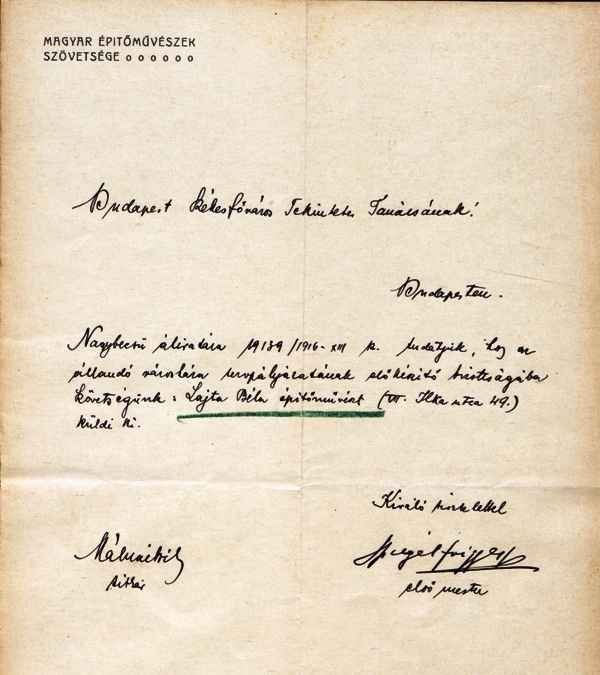 MAGYAR ÉPITŐMŰVÉSZEK
SZÖVETSÉGE o o o o o o
Budapest Székesfőváros Tekintetes Tanácsának!
Budapesten.
Nagybecsű átiratára /1916-XIII tudatjuk, hogy az
állandó városháza tervpályázatának előkészítő bizottságába
Szövetségünk: Lajta Béla építőművészt (VII. Ilka utca 49.)
küldi ki.
Kiváló tisztelettel
Málnai Béla
titkár
Spiegel Frigyes
első mester